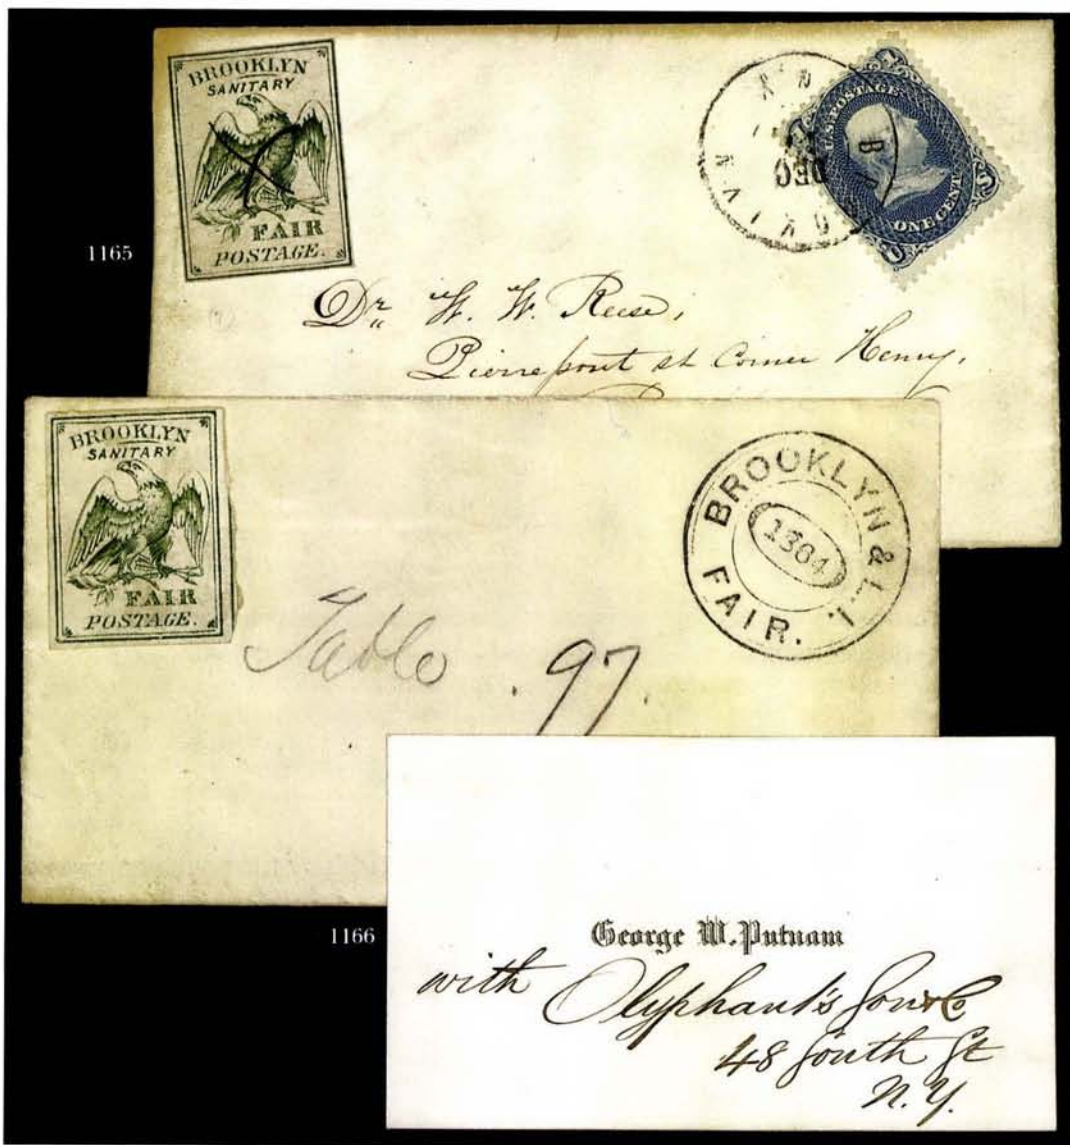 1165
BROOKLYN
SANITARY
FAIR
POSTAGE.
BROOKLYN
DEC
U.S. POSTAGE
ONE CENT
Dr. W. W. Reese,
Pierrepont st Corner Henry,
BROOKLYN
SANITARY
FAIR
POSTAGE.
BROOKLYN & L. I.
1864
FAIR.
Table . 97.
1166
George W. Putnam
with Olyphant's Son & Co
48 South St
N. Y.